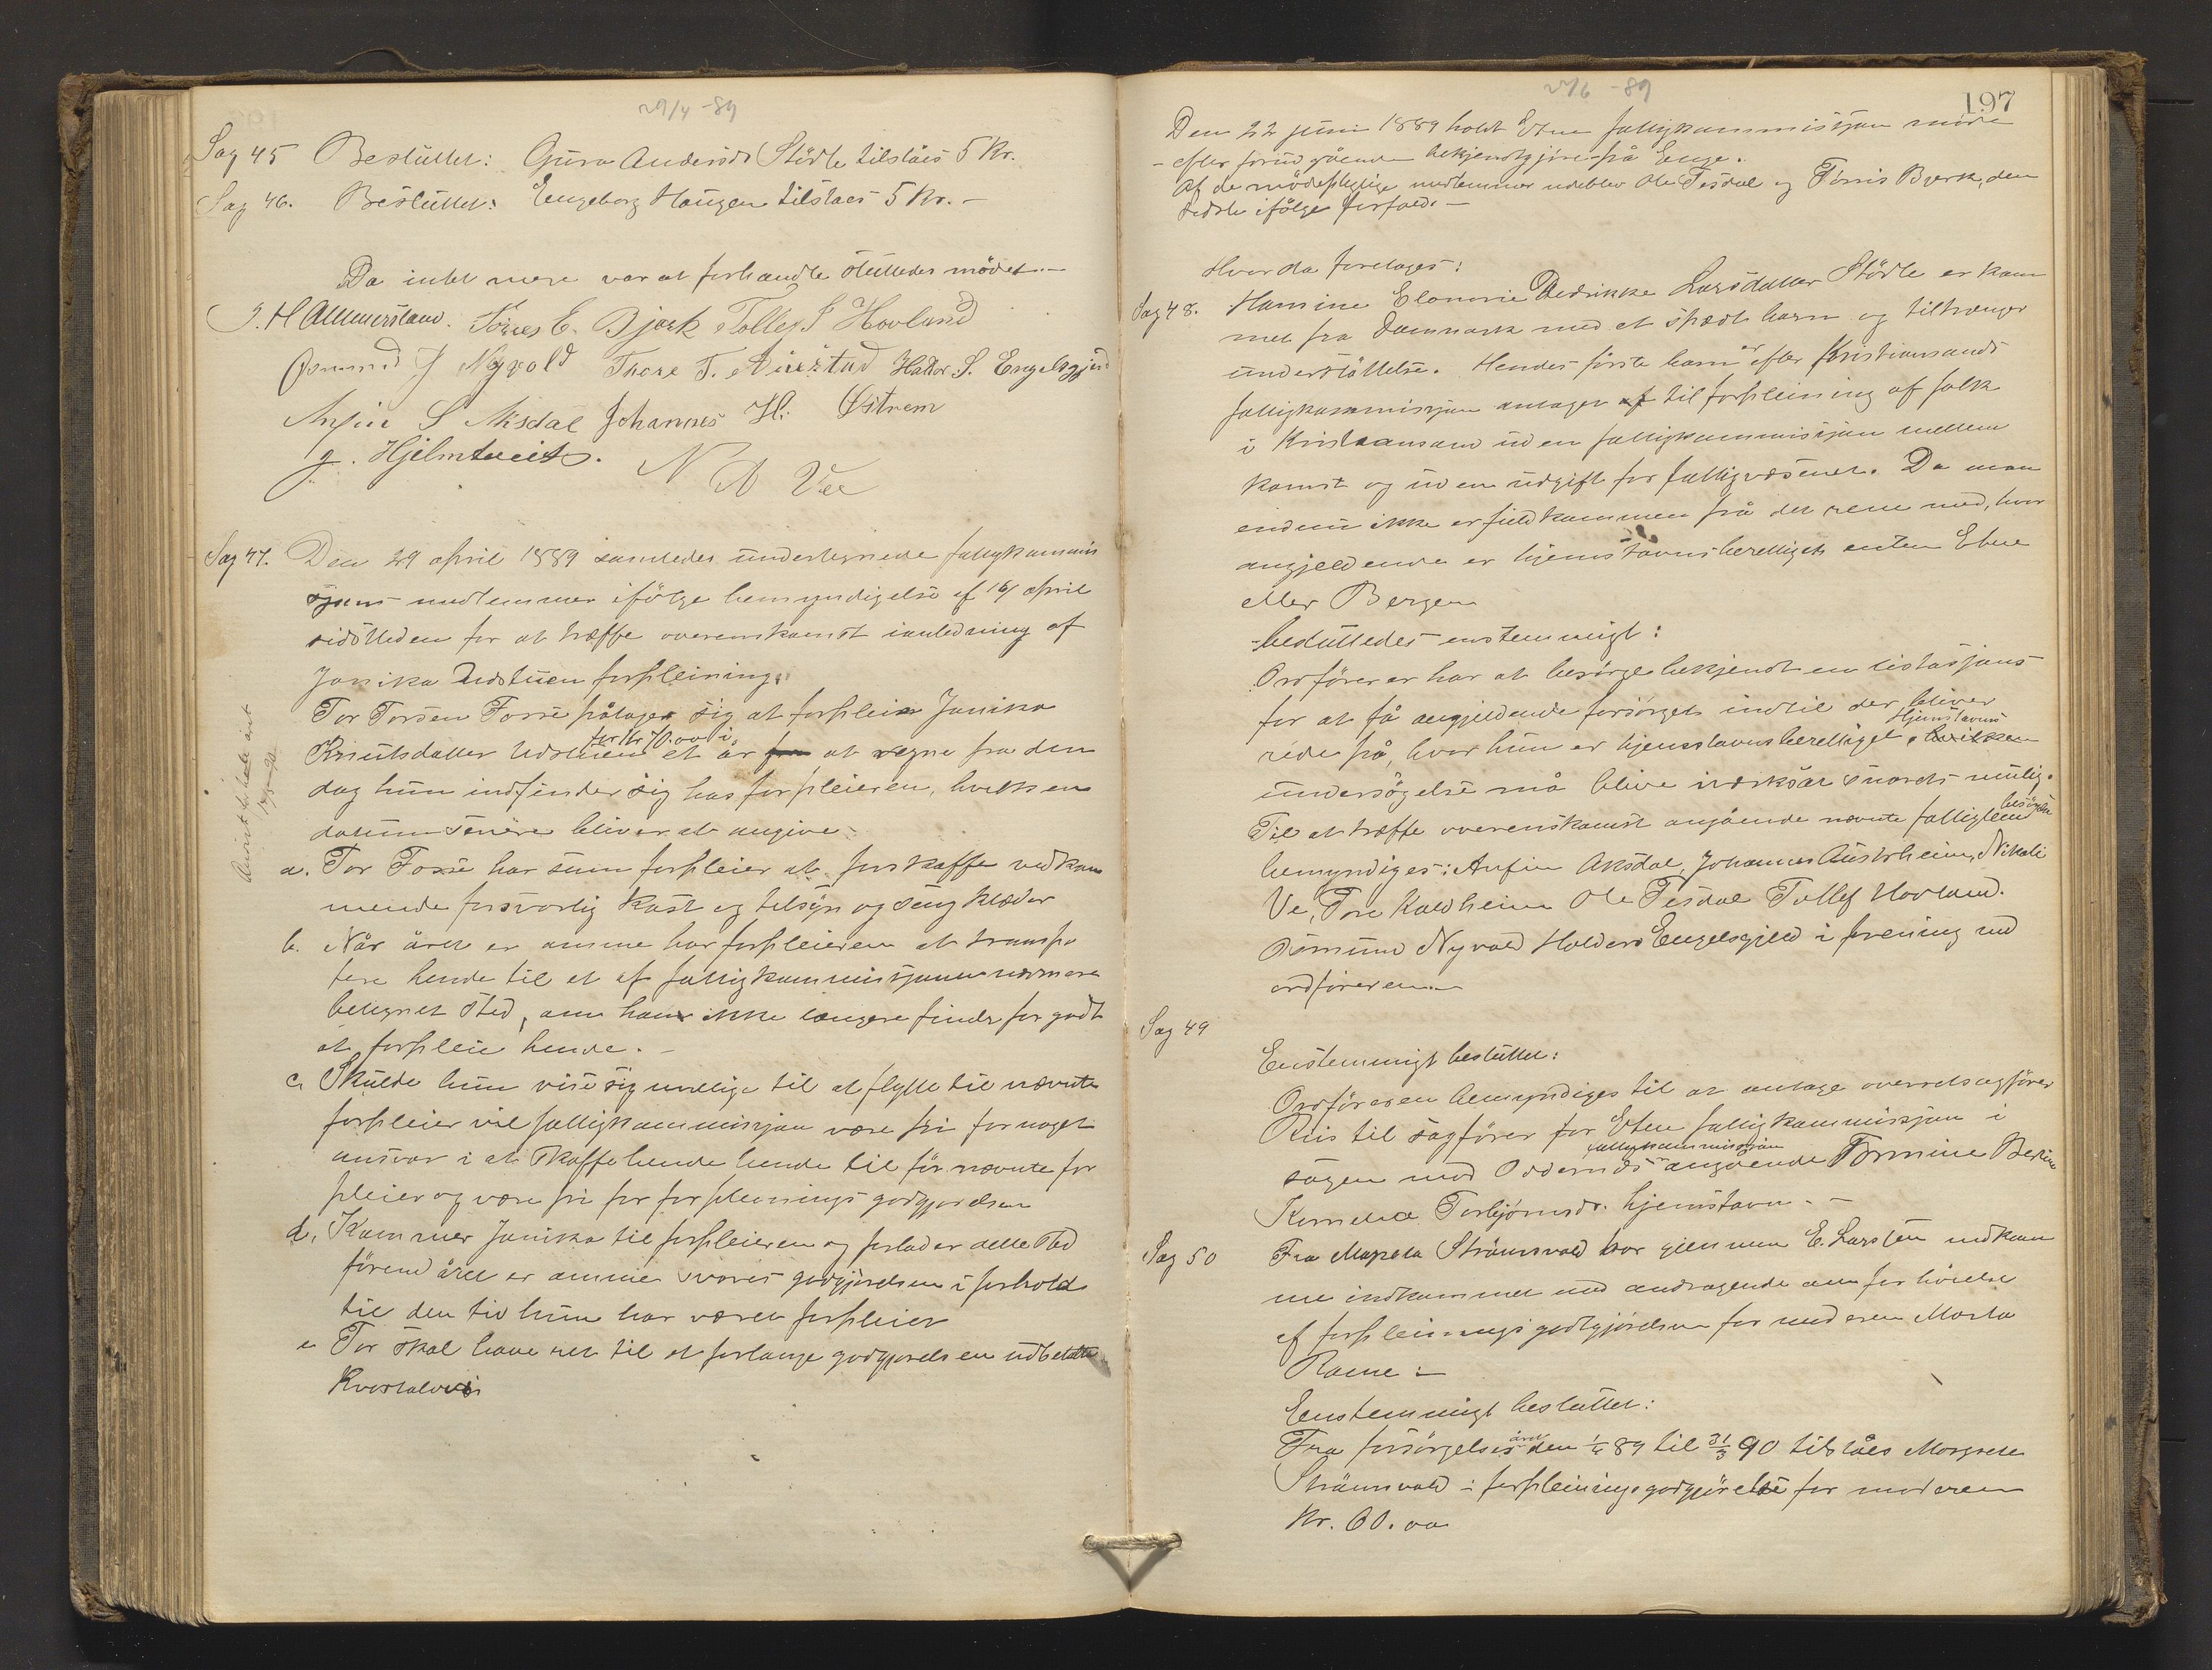 29/4 - 89
Sag 45 Besluttet: Güro Andersdr Stödle tilståes 5 Kr.
Sag 46. Besluttet: Engeborg Haugen tilståes 5 Kr. -
Da intet mere var at forhandle sluttedes mödet. -
Törres E. Bjørk Tollef S Hovland
J Nyvold Thore T. Austad Haldor S. Engelsgjerd
S Aksdal Johannes H. Østrem
g. Hjelmtveit.
N A Vee
Sag 47. Den 29 april 1889 samledes undertegnede fattigkommis
sjons medlemmer ifölge bemyndigelse af 16/ april
sidstleden for at træffe overenskomst i anledning af
Janika Udstuen forpleining.
Tor Torsen Fosse påtager sig at forpleie Janika
Knutsdatter Udstuen for Kr 70.00 i et år at regne fra den
dag hun indfinder sig hos forpleieren, hvilken
datum senere bliver at angive.
a. Tor Fosse har som forpleier at forskaffe vedkom
mende forsvarlig kost og tilsyn og sengklæder
b. Når året er omme har forpleieren at transpo
tere hende til et af fattigkommissjonen nærmere
betegnet sted, om han ikke længere finder for godt
at forpleie hende. -
c. Skulde hun vise sig uvillige til at flytte til nævnte
forpleier vil fattigkommissjon være fri for noget
ansvar i at skaffe hende hende til för nævnte for
pleier og være fri for forpleinings godtgjørelsen
d. Kommer Janika til forpleieren og forlader dette sted
förend året er omme svares godtgjørelsen i forhold
til den tid hun har været forpleiet
e Tor skal have ret til at forlange godtgjørelsen udbetalt
Kvartalvis
22/6 - 89
197
Den 22 juni 1889 holdt Etne fattigkommissjon möde
- efter forudgående bekjendtgjøre på Enge.
Af de mödepligtige medlemmer udeblev Ole Tesdal og Törris Bjerk, den
sidste ifölge forfald. -
Hvor da foretages:
Sag 48. Hansine Elomine Dedrikke Larsdatter Stödle er kom
met fra Danmark med et spædt barn og tiltrænger
understøttelse. Hendes første barn er efter Kristiansands
fattigkommissjon antaget til forpleining af folk
i Kristiansand uden fattigkommissjon mellem
komst og uden udgift for fattigvæsenet. Da man
endnu ikke er fuldkommen på det rene med, hvor
angjeldende er hjemstavnsberettiget enten Etne
eller Bergen
- besluttedes enstemmigt:
Ordføreren har at besørge bekjendt en lictasjons
for at få angjeldende forsørget indtil der bliver
rede på, hvor hun er hjemstavnsberettiget, Hjemstavns
undersögelse må blive iverksat snarest mulig.
Til at træffe overenskomst angående nævnte fattiglems besörgelse
bemyndiges: Anfin Aksdal, Johannes Austrheim, Nikolai
Ve, Tore Kaldheim Ole Tesdal Tollef Hovland.
Osmund Nyvold Haldors Engelsgjerd i forening med
ordföreren. -
Sag 49
Enstemmigt besluttet:
Ordföreren bemyndiges til at antage overretsagförer
Riis til sagförer for Etne fattigkommissjon i
sagen mod Oddernes fattigkommissjon angående Tormine Berline
Torbjörnsdr. hjemstavn. -
Sag 50 Fra Strömsvold har gjennem E. Larsten
indkommet med andragende om forhöielse
af forpleinings godtgjörelsen for moderen Marta
Rame: -
Enstemmigt besluttet:
Fra forsörgelsesåret den 1/4 89 til 31/3 90 tilståes Margrete
Strömsvold i forpleiningsgodtgjörelse for moderen
Kr. 60.00